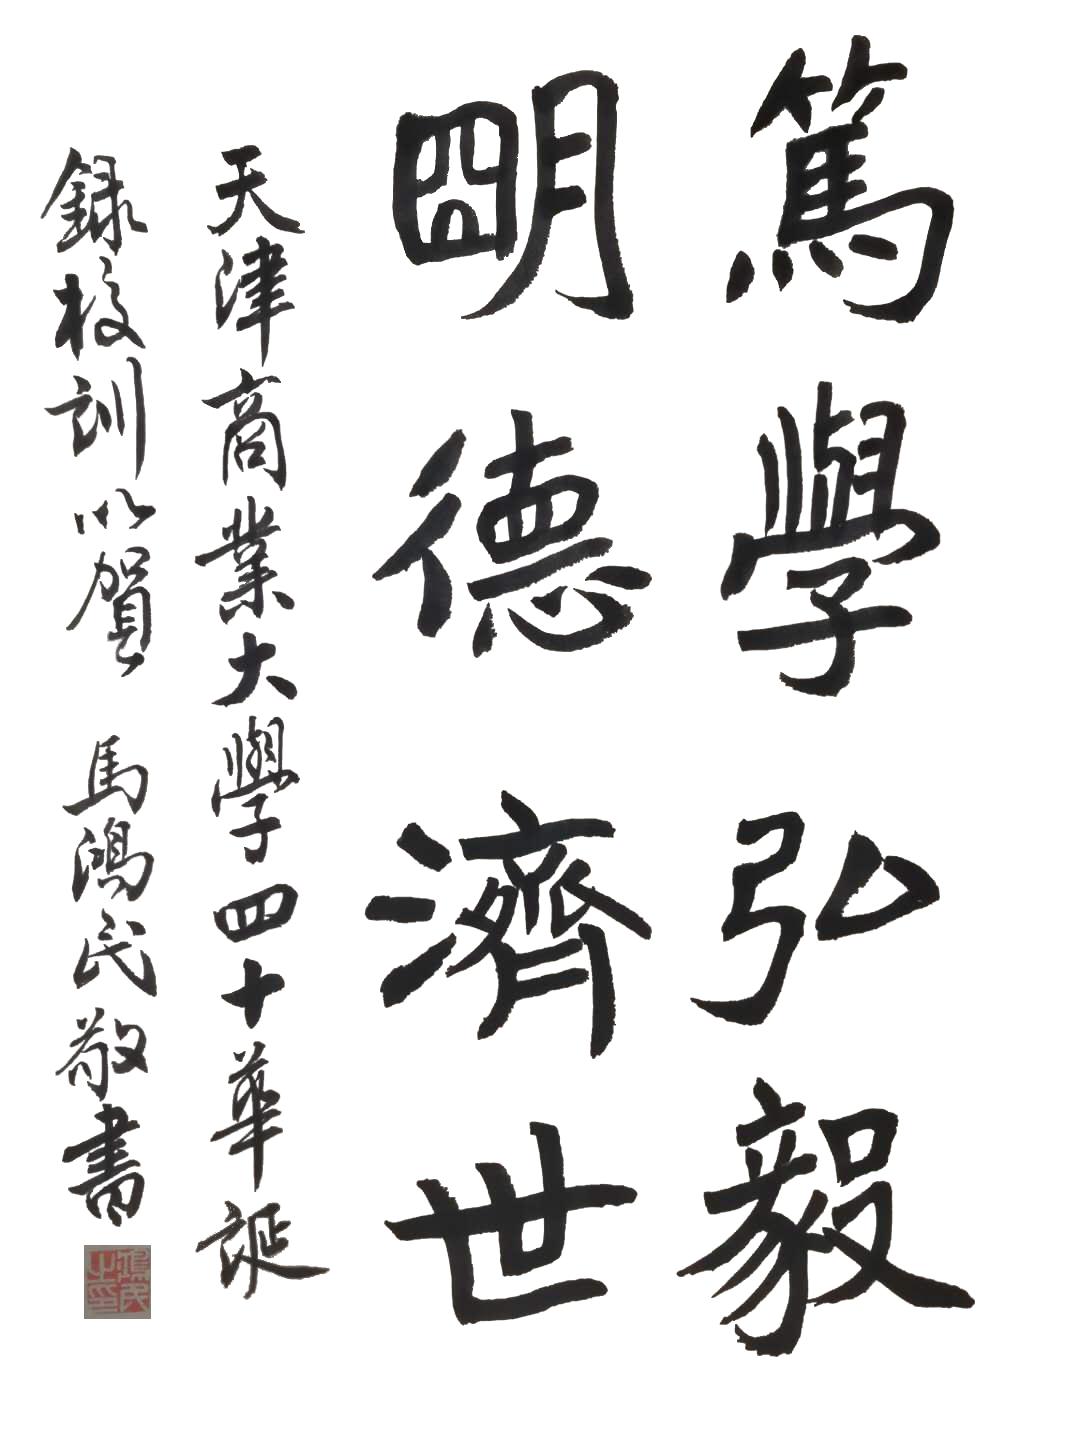 篤學弘毅
朙德濟世
天津商業大學四十華誕
録校訓以賀 馬鴻民敬書
鴻民之印